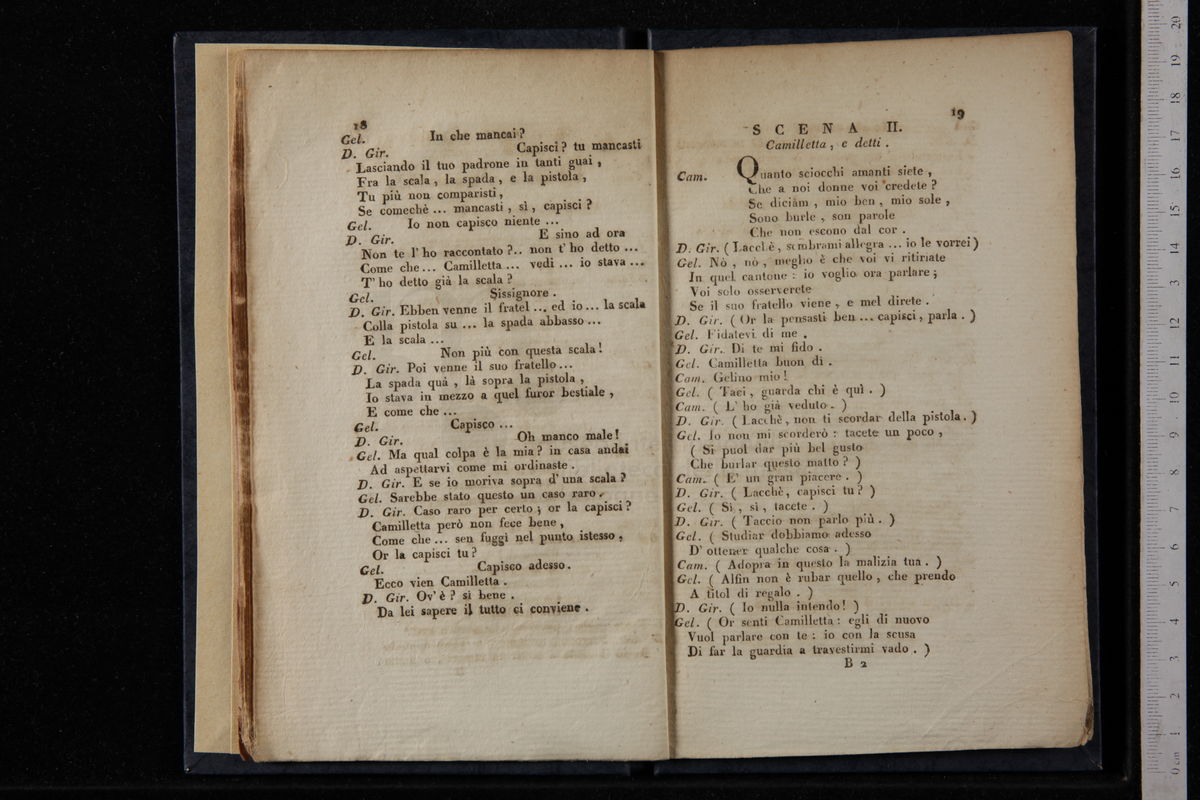 18
Gel. In che mancai?
D. Gir. Capisci? tu mancasti
Lasciando il tuo padrone in tanti guai,
Fra la scala, la spada, e la pistola,
Tu più non comparisti,
Se comechè ... mancasti, sì, capisci?
Gel. Io non capisco niente ...
D. Gir. E sino ad ora
Non te l' ho raccontato?.. non t' ho detto ...
Come che ... Camilletta ... vedi ... io stava ...
T' ho detto già la scala?
Gel. Sissignore.
D. Gir. Ebben venne il fratel ... ed io ... la scala
Colla pistola su ... la spada abbasso ...
E la scala ...
Gel. Non più con questa scala!
D. Gir. Poi venne il suo fratello ...
La spada quà, là sopra la pistola,
Io stava in mezzo a quel furor bestiale,
E come che ...
Gel. Capisco ...
D. Gir. Oh manco male!
Gel. Ma qual colpa è la mia? in casa andai
Ad aspettarvi come mi ordinaste.
D. Gir. E se io moriva sopra d' una scala?
Gel. Sarebbe stato questo un caso raro.
D. Gir. Caso raro per certo; or la capisci?
Camilletta però non fece bene,
Come che ... sen fuggì nel punto istesso,
Or la capisci tu?
Gel. Capisco adesso.
Ecco vien Camilletta.
D. Gir. Ov' è? sì bene.
Da lei sapere il tutto ci conviene.
19
SCENA II.
Camilletta, e detti.
Cam. Quanto sciocchi amanti siete,
Che a noi donne voi credete?
Se diciam, mio ben, mio sole,
Sono burle, son parole
Che non escono dal cor.
D. Gir. (Lacchè, sembrami allegra ... io le vorrei)
Gel. Nò, nò, meglio è che voi vi ritiriate
In quel cantone: io voglio ora parlare;
Voi solo osserverete
Se il suo fratello viene, e mel direte.
D. Gir. (Or la pensasti ben ... capisci, parla.)
Gel. Fidatevi di me.
D. Gir. Di te mi fido.
Gel. Camilletta buon dì.
Cam. Gelino mio!
Gel. (Taci, guarda chi è quì.)
Cam. (L' ho già veduto.)
D. Gir. (Lacchè, non ti scordar della pistola.)
Gel. Io non mi scorderò: tacete un poco,
(Si puol dar più bel gusto
Che burlar questo matto?)
Cam. (E' un gran piacere.)
D. Gir. (Lacchè, capisci tu?)
Gel. (Sì, sì, tacete.)
D. Gir. (Taccio non parlo più.)
Gel. (Studiar dobbiamo adesso
D' ottener qualche cosa.)
Cam. (Adopra in questo la malizia tua.)
Gel. (Alfin non è rubar quello, che prendo
A titol di regalo.)
D. Gir. (Io nulla intendo!)
Gel. (Or senti Camilletta: egli di nuovo
Vuol parlare con te: io con la scusa
Di far la guardia a travestirmi vado.)
B 2
0 cm 1 2 3 4 5 6 7 8 9 10 11 12 13 14 15 16 17 18 19 20